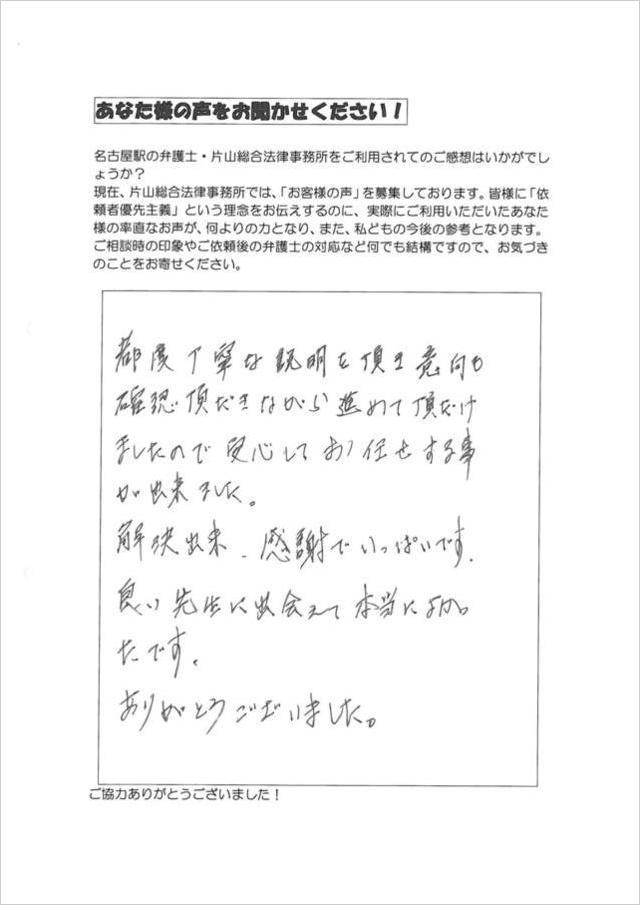 あなた様の声をお聞かせください！
名古屋駅の弁護士・片山総合法律事務所をご利用されてのご感想はいかがでし
ょうか？
現在、片山総合法律事務所では、「お客様の声」を募集しております。皆様に「依
頼者優先主義」という理念をお伝えするのに、実際にご利用いただいたあなた
様の率直なお声が、何よりの力となり、また、私どもの今後の参考となります。
ご相談時の印象やご依頼後の弁護士の対応など何でも結構ですので、お気づき
のことをお寄せください。
都度丁寧な説明を頂き意向も
確認頂だきながら進めて頂だけ
ましたので安心してお任せする事
が出来ました。
解決出来、感謝でいっぱいです。
良い先生に出会えて本当によかっ
たです。
ありがとうございました。
ご協力ありがとうございました！